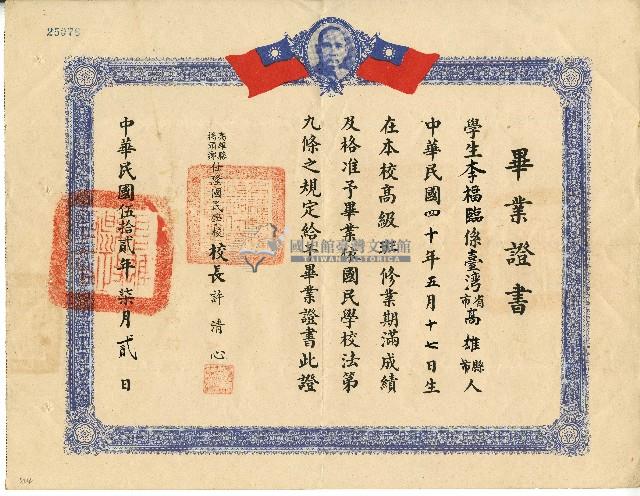 25976
畢業證書
學生李福臨係臺灣省市高雄縣市人
中華民國四十年五月十七日生
在本校高級班修業期滿成績
及格准予畢業依國民學校法第
九條之規定給予畢業證書此證
高雄縣橋頭鄉仕隆國民學校校長許清心
中華民國伍拾貳年柒月貳日
國史館臺灣文獻館
TAIWAN HISTORICA